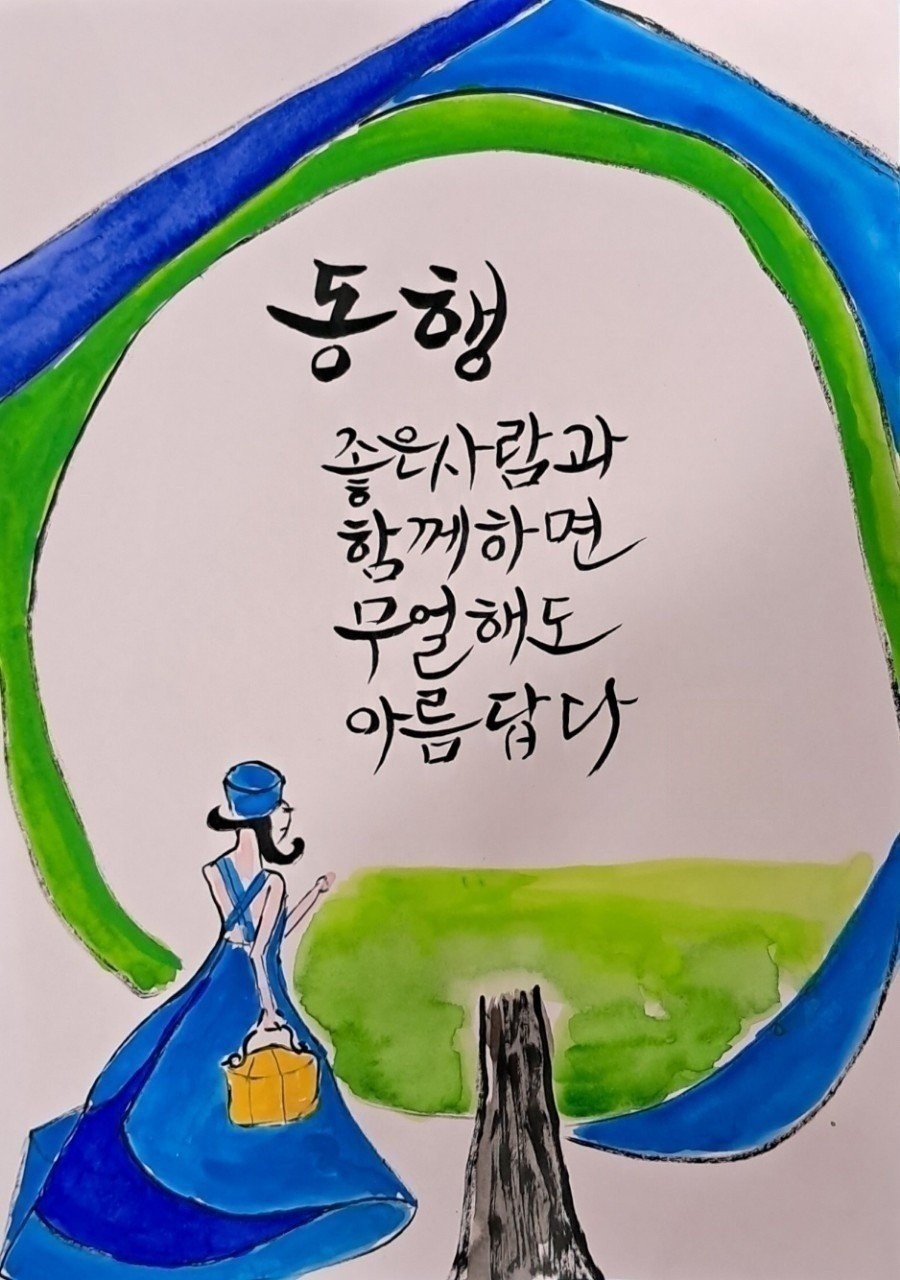 동행
좋은사람과
함께하면
무얼해도
아름답다